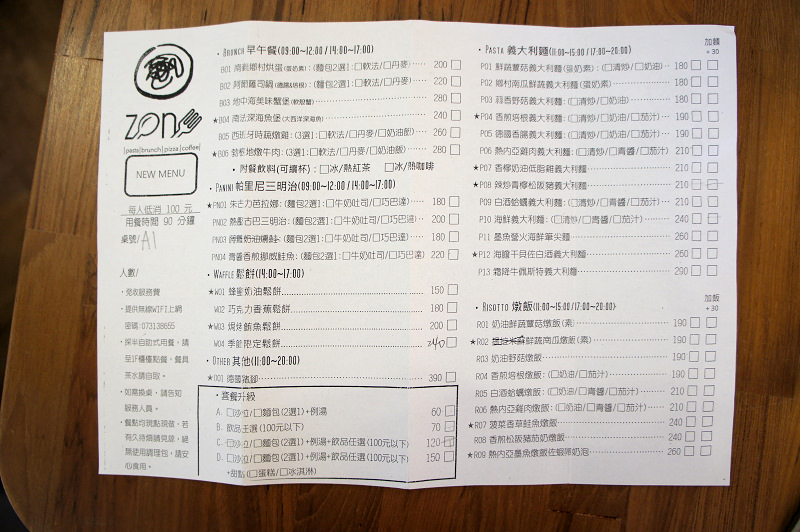 ZONE
|pasta|brunch|pizza|coffee|
NEW MENU
每人低消 100 元
用餐時間 90 分鐘
桌號/A1
人數/
・免收服務費
・提供無線WIFI上網
密碼:073138655
・採半自助式用餐，請
至1F櫃檯點餐，餐具
茶水請自取。
・如需換桌，請告知
服務人員。
・餐點均現點現做，若
有久待煩請見諒，絕
無使用調理包，請安
心食用。
・BRUNCH 早午餐(09:00~12:00 / 14:00~17:00)
B01 南義鄉村烘蛋(蛋奶素):(麵包2選1:□軟法/□丹麥) 200 □
B02 阿爾薩司鍋(德腸&培根):(麵包2選1:□軟法/□丹麥) 220 □
B03 地中海美味蟹堡(軟殼蟹) 280 □
★B04 南法深海魚堡(大西洋深海魚) 240 □
B05 西班牙時蔬燉雞:(3選1:□軟法/□丹麥/□奶油飯) 260 □
★B06 勃根地燉牛肉:(3選1:□軟法/□丹麥/□奶油飯) 280 □
・附餐飲料(可續杯):□冰/熱紅茶 □冰/熱咖啡
・PANINI 帕里尼三明治(09:00~12:00 / 14:00~17:00)
★PN01 朱古力芭拉娜:(麵包2選1:□牛奶吐司/□巧巴達) 180 □
PN02 熱壓古巴三明治:(麵包2選1:□牛奶吐司/□巧巴達) 200 □
PN03 奶油燻鮭:(麵包2選1:□牛奶吐司/□巧巴達) 180 □
PN04 青醬香煎挪威鮭魚:(麵包2選1:□牛奶吐司/□巧巴達) 220 □
・WAFFLE 鬆餅(14:00~17:00)
★W01 蜂蜜奶油鬆餅 150 □
W02 巧克力香蕉鬆餅 180 □
★W03 焗烤鮪魚鬆餅 200 □
W04 季節限定鬆餅 240 □
・OTHER 其他(11:00~20:00)
★O01 德國豬腳 390 □
・套餐升級
A. □沙拉/□麵包(2選1)+例湯 60 □
B. 飲品任選(100元以下) 70 □
C. □沙拉/□麵包(2選1)+例湯+飲品任選(100元以下) 120 □
D. □沙拉/□麵包(2選1)+例湯+飲品任選(100元以下) 150 □
+甜點(□蛋糕/□冰淇淋)
・PASTA 義大利麵(11:00~15:00 / 17:00~20:00) 加麵
+30
P01 鮮蔬蕈菇義大利麵(蛋奶素):(□清炒/□奶油) 180 □□
P02 鄉村南瓜鮮蔬義大利麵(蛋奶素) 180 □□
P03 蒜香野菇義大利麵:(□清炒/□奶油) 180 □□
★P04 香煎培根義大利麵:(□清炒/□奶油/□茄汁) 190 □□
P05 德國香腸義大利麵:(□清炒/□奶油/□茄汁) 190 □□
P06 熱內亞雞肉義大利麵:(□清炒/□青醬/□茄汁) 210 □□
★P07 香檸奶油低脂雞義大利麵 210 □□
★P08 辣炒青檸松阪豬義大利麵 210 □□
P09 白酒蛤蠣義大利麵:(□清炒/□青醬/□茄汁) 210 □□
P10 海鮮義大利麵:(□清炒/□青醬/□茄汁) 240 □□
P11 墨魚螢火海鮮筆尖麵 260 □□
★P12 海膽干貝佐白酒義大利麵 260 □□
P13 霜降牛佩斯特義大利麵 290 □□
・RISOTTO 燉飯(11:00~15:00 / 17:00~20:00) 加飯
+30
R01 奶油鮮蔬蕈菇燉飯(素) 190 □□
★R02 鮮蔬南瓜燉飯(素) 190 □□
R03 奶油野菇燉飯 190 □□
R04 香煎培根燉飯:(□奶油/□茄汁) 190 □□
R05 白酒蛤蠣燉飯:(□奶油/□青醬/□茄汁) 210 □□
R06 熱內亞雞肉燉飯:(□奶油/□青醬/□茄汁) 210 □□
★R07 菠菜香草鮭魚燉飯 240 □□
R08 香煎松阪豬茄奶燉飯 240 □□
★R09 熱內亞墨魚燉飯佐蝦隔奶泡 260 □□